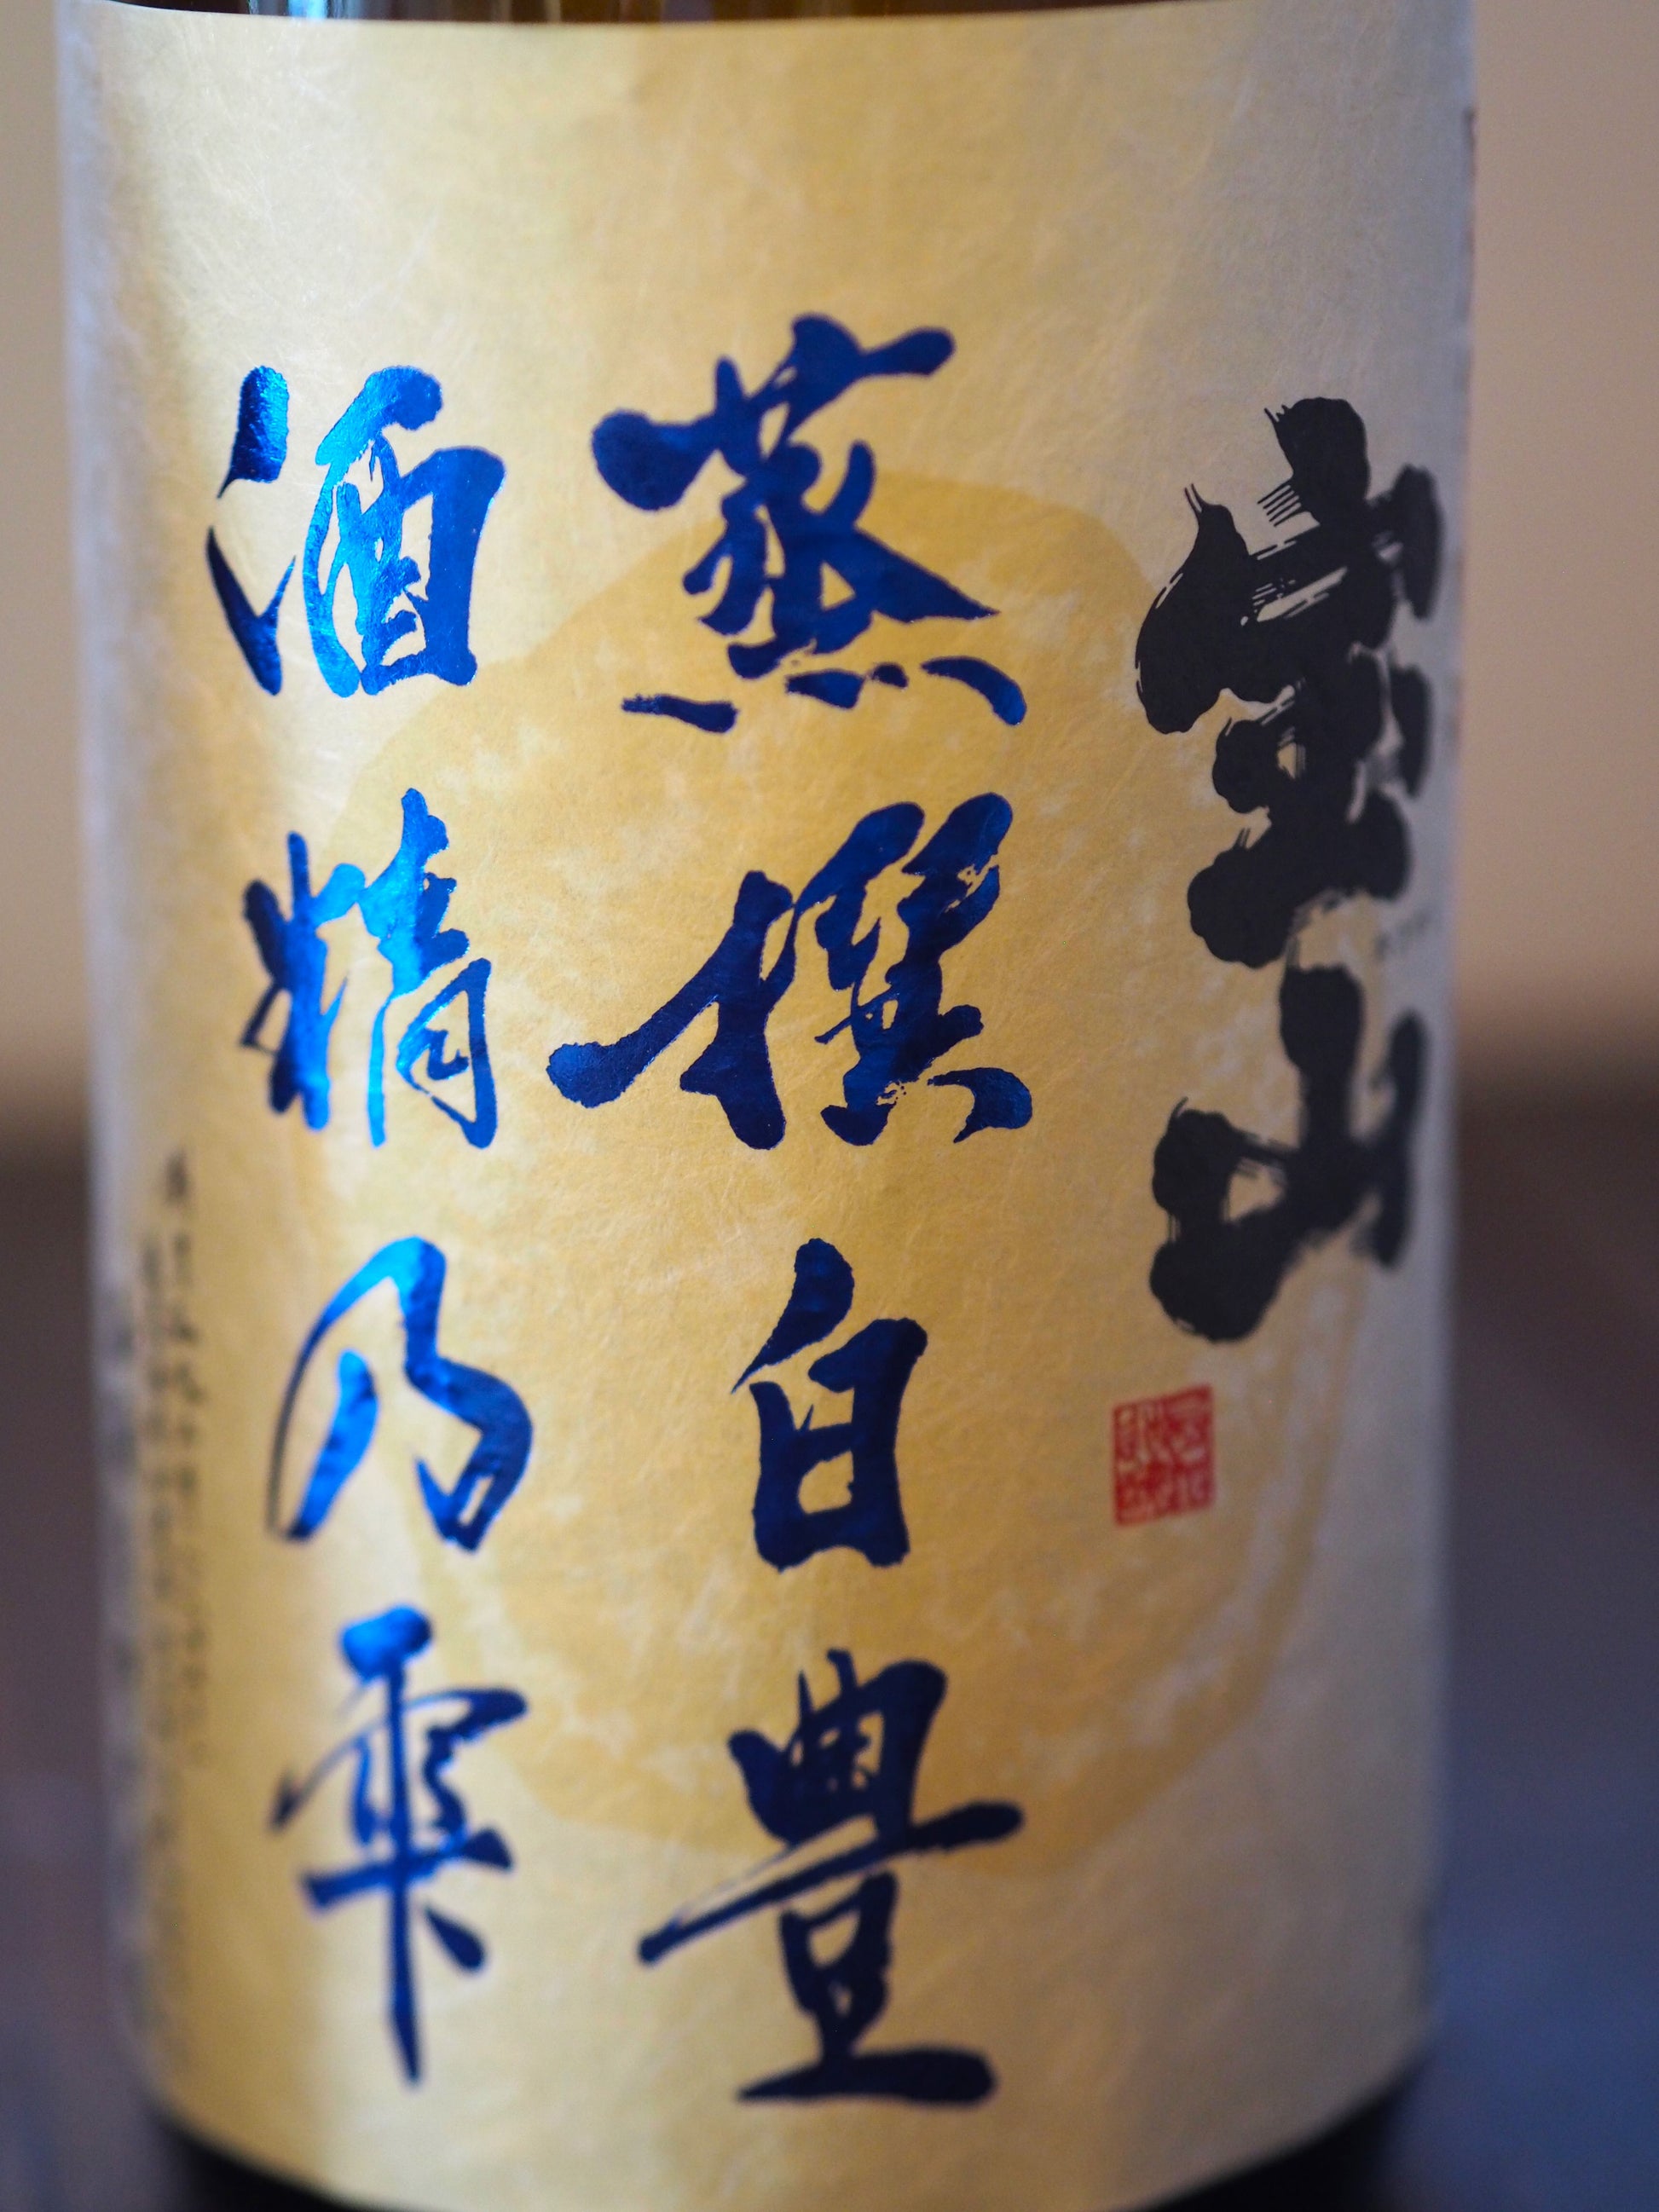 宝山
蒸撰白豊
酒精乃雫